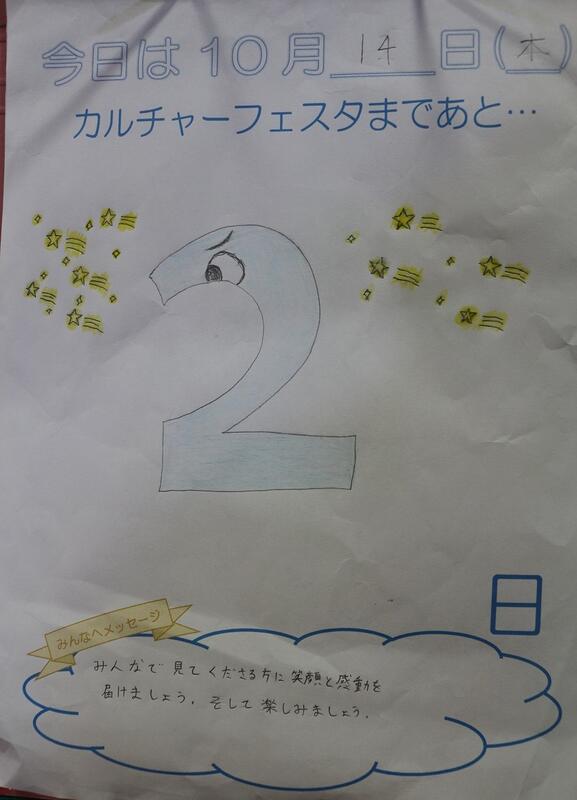 今日は10月14日(木)
カルチャーフェスタまであと…
2
日
みんなへメッセージ
みんなで見てくださる方に笑顔と感動を
届けましょう。そして楽しみましょう。